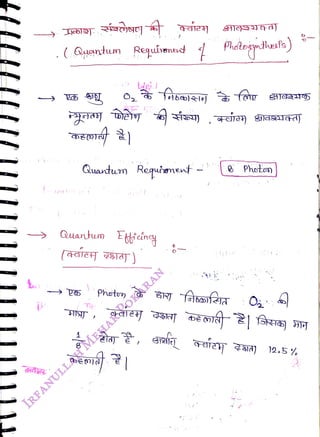 → प्रकाश संश्लेषण की क्वांटम आवश्यकता :-
( Quantum Requirement of Photosynthesis )
→ एक अणु O₂ के निष्कासन के लिए आवश्यक
न्यूनतम फोटोन की संख्या, क्वांटम आवश्यकता
कहलाती है|
Quantum Requirement - 8 Photon
→ Quantum Efficiency
(क्वांटम दक्षता) :-
→ एक Photon के द्वारा निष्कासित O₂ की
मात्रा, क्वांटम दक्षता कहलाती है| जिसका मान
1/8 होता है, अर्थात् क्वांटम दक्षता 12.5%
कहलाती है|
IRFANULLAH MEHAR POKARAN